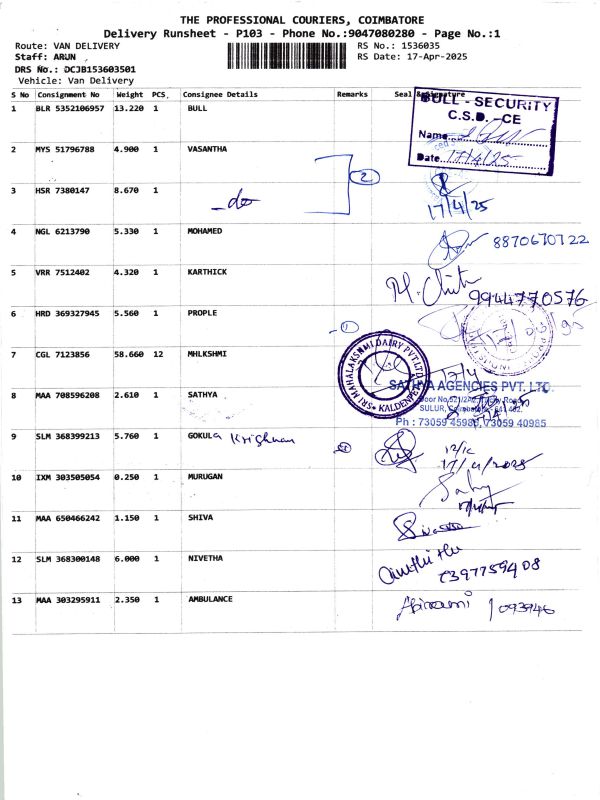 THE PROFESSIONAL COURIERS, COIMBATORE
Delivery Runsheet - P103 - Phone No.:9047080280 - Page No.:1
Route: VAN DELIVERY
RS No.: 1536035
Staff: ARUN
RS Date: 17-Apr-2025
DRS No.: DCJB153603501
Vehicle: Van Delivery
S No Consignment No Weight PCS. Consignee Details Remarks Seal & Signature
1 BLR 5352106957 13.220 1 BULL
BULL - SECURITY
C.S.D. - CE
Name
Date 17/4/25
2 MYS 51796788 4.900 1 VASANTHA
2
3 HSR 7380147 8.670 1
do
17/4/25
4 NGL 6213790 5.330 1 MOHAMED
8870670722
5 VRR 7512402 4.320 1 KARTHICK
9944770576
6 HRD 369327945 5.560 1 PROPLE
1
7 CGL 7123856 58.660 12 MHLKSHMI
SRI MAHALAKSHMI DAIRY PVT.LTD.
KALDENPET
17/4
8 MAA 708596208 2.610 1 SATHYA
SATHYA AGENCIES PVT. LTD.
SULUR,
Ph : 73059 45983, 73059 40985
9 SLM 368399213 5.760 1 GOKULa Krishnan
17/4/2025
10 IXM 303505054 0.250 1 MURUGAN
11 MAA 650466242 1.150 1 SHIVA
12 SLM 368300148 6.000 1 NIVETHA
13 MAA 303295911 2.350 1 AMBULANCE
Abirami